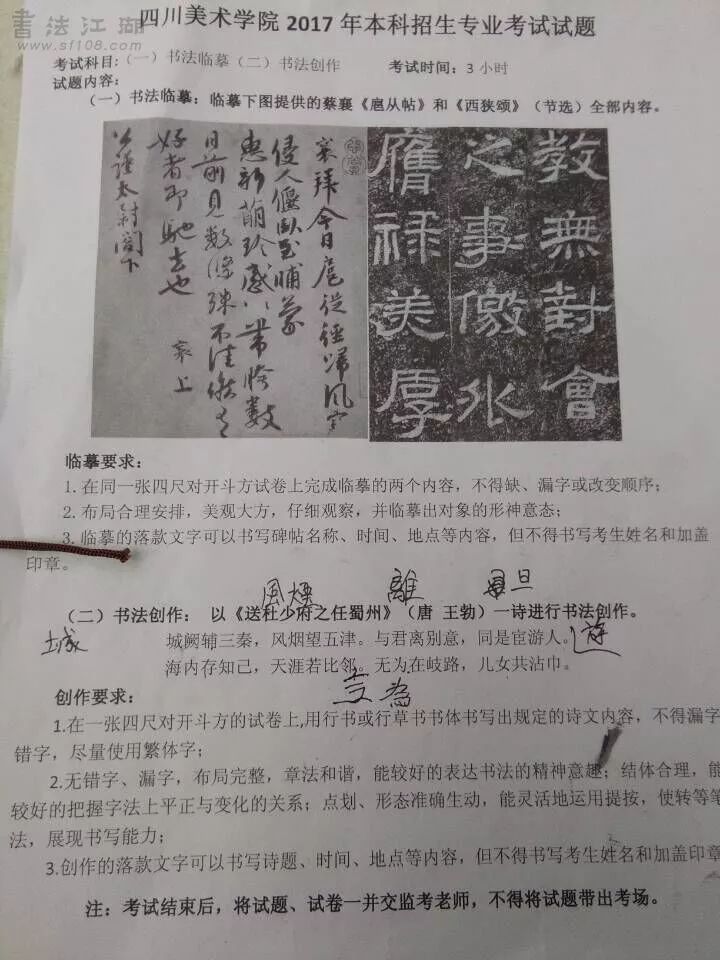 书法江湖
www.sf108.com
四川美术学院 2017 年本科招生专业考试试题
考试科目:（一）书法临摹（二）书法创作 考试时间：3 小时
试题内容：
（一）书法临摹：临摹下图提供的蔡襄《扈从帖》和《西狭颂》（节选）全部内容。
教無對會
之事徼外
膺祿美厚
襄拜今日扈從徑歸風寒
侵人偃臥至晡蒙
惠新萌珍感〃帶胯數
日前見數條殊不佳候有
好者即馳去也 襄上
公謹太尉閣下
临摹要求：
1. 在同一张四尺对开斗方试卷上完成临摹的两个内容，不得缺、漏字或改变顺序；
2. 布局合理安排，美观大方，仔细观察，并临摹出对象的形神意态；
3. 临摹的落款文字可以书写碑帖名称、时间、地点等内容，但不得书写考生姓名和加盖
印章。
風 離 旦
（二）书法创作： 以《送杜少府之任蜀州》（唐 王勃）一诗进行书法创作。
城 城阙辅三秦，风烟望五津。与君离别意，同是宦游人。遊
海内存知己，天涯若比邻。无为在歧路，儿女共沾巾。
為
创作要求：
1.在一张四尺对开斗方的试卷上,用行书或行草书书体书写出规定的诗文内容，不得漏字
错字，尽量使用繁体字；
2.无错字、漏字，布局完整，章法和谐，能较好的表达书法的精神意趣；结体合理，能
较好的把握字法上平正与变化的关系；点划、形态准确生动，能灵活地运用提按，使转等笔
法，展现书写能力；
3.创作的落款文字可以书写诗题、时间、地点等内容，但不得书写考生姓名和加盖印章
注：考试结束后，将试题、试卷一并交监考老师，不得将试题带出考场。